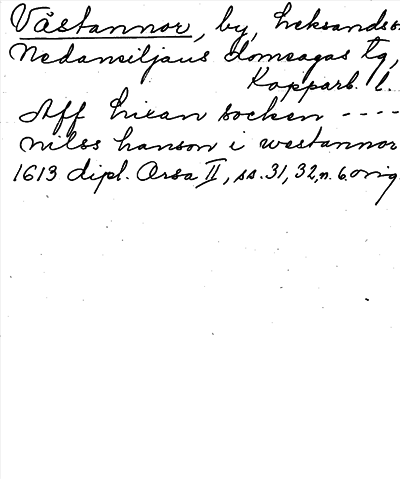 Västannor, by, Leksands s.
Nedansiljans domsagas tg,
Kopparb. l.
Aff Lixan socken ----
nilss hanson i westannor
1613 dipl. Orsa II, ss. 31, 32, n. 6. orig.